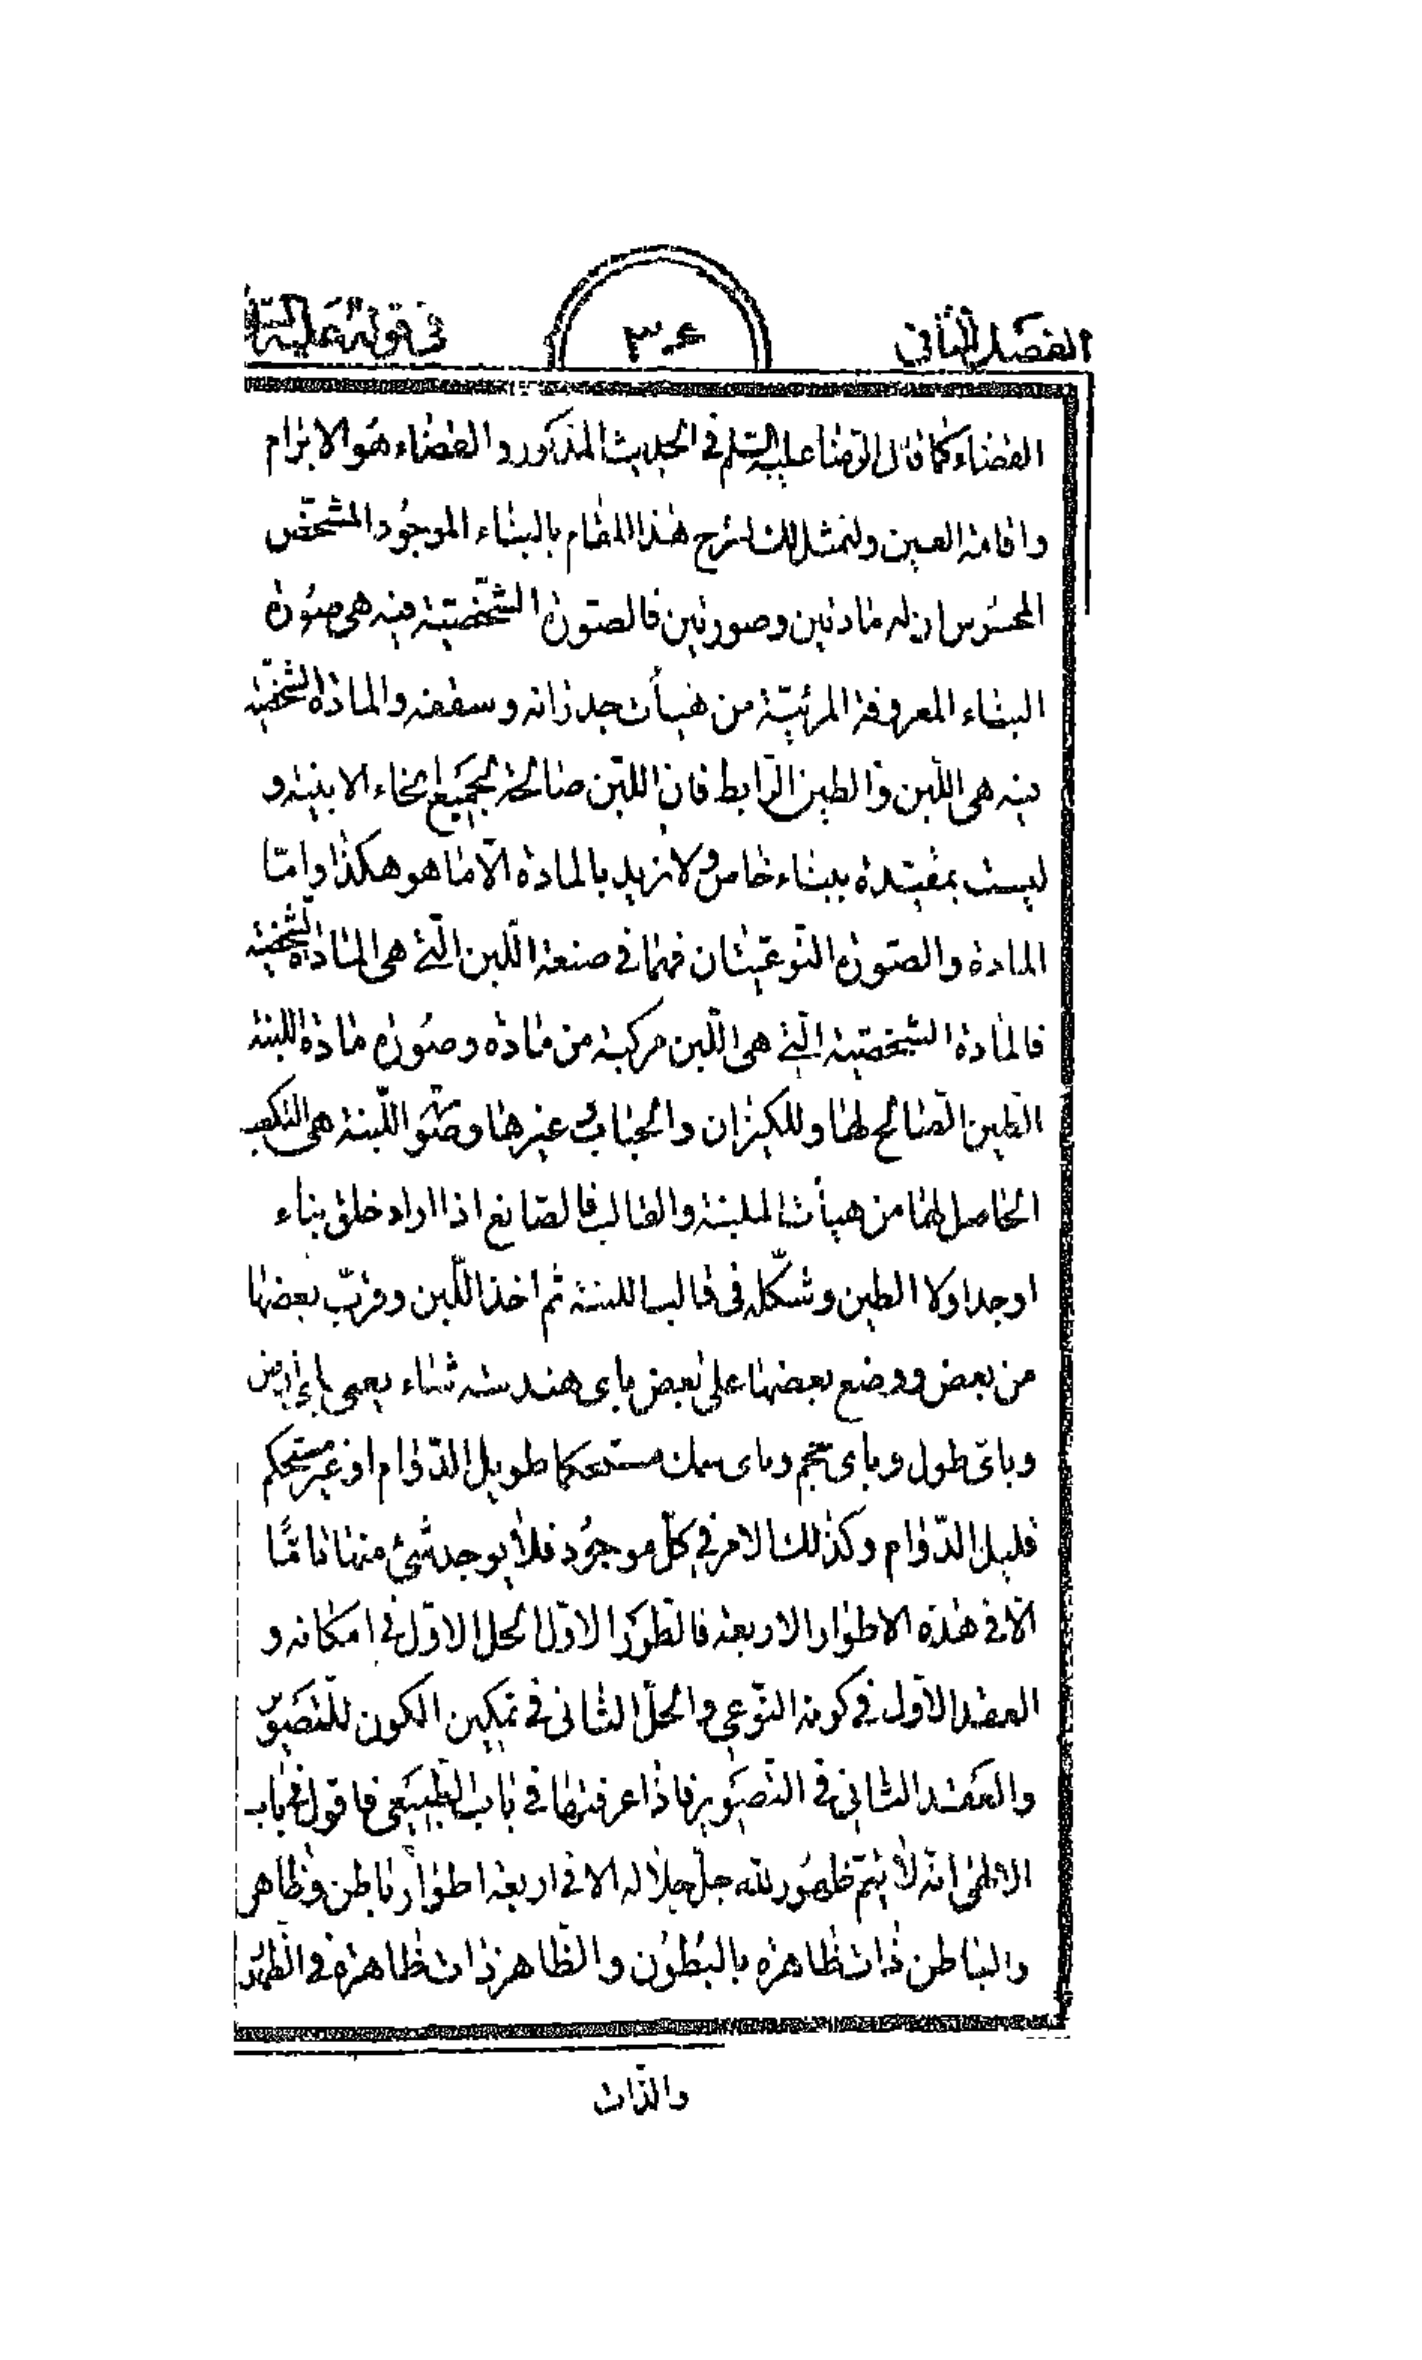 الفصل الثاني
في قوله عليه السلام
القضاء كما قال الرضا عليه السلم في الحديث المذكور و القضاء هو الابرام
و اقامة العين و لنمثل لك لشرح هذا المقام بالبناء الموجود المشخّص
المحسوس ان له مادتين و صورتين فالصورة الشخّصيّة فيه هي صورة
البناء المعروفة المرئيّة من هيأت جدرانه و سقفه و المادة الشخصيّة
فيه هي اللّبن و الطين الرّابط فان اللبن صالحة لجميع انحاء الابنية و
ليست بمقيّدة ببناء خاص و لا نريد بالمادة الّا ما هو هكذا و امّا
المادة و الصّورة النّوعيّتان فهما في صنعة اللّبن الّتي هي المادة الشخصية
فالمادة الشّخصّية الّتي هي اللّبن مركبة من مادة و صورة مادة اللبنة
الطين الصّالح لها و للكيزان و الحباب و غيرها و صورة اللّبنة هي التكعيب
الحاصل لها من هيأت الملبنة و القالب فالصّانع اذا اراد خلق بناء
اوجد اولا الطين و شكّله في قالب اللبنة ثم اخذ اللّبن و قرّب بعضها
من بعض و وضع بعضها على بعض باي هندسة شاء يعني باي عرض
و باىّ طول و باى حجم و باى سمك مستحكما طويل الدّوام او غير مستحكم
قليل الدّوام و كذلك الامر في كلّ موجود فلا يوجد شئ منها تامًّا
الّا في هذه الاطوار الاربعة فالطّور الاوّل الحل الاوّل في امكانه و
العقد الاوّل في كونه النّوعي و الحلّ الثاني في تمكين الكون للتّصوّر
و العقد الثاني في التصوير فاذا عرفتها في باب الطّبيعي فاقول في باب
الالهي انّه لا يتمّ ظهور للّه جلّ جلاله الا في اربعة اطوار باطن و ظاهر
و الباطن ذات ظاهرة بالبطون و الظّاهر ذات ظاهرة في الظّهور
و الذّات